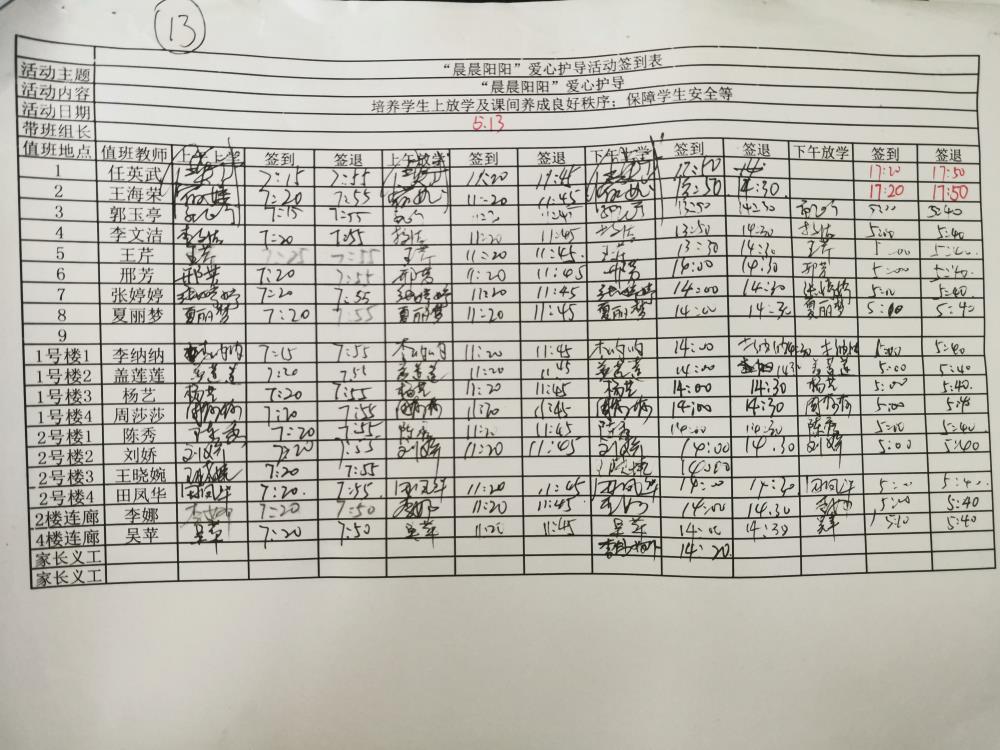 13
"晨晨阳阳"爱心护导活动签到表
活动主题 "晨晨阳阳"爱心护导
活动内容 培养学生上放学及课间养成良好秩序；保障学生安全等
活动日期 5.13
带班组长
值班地点 值班教师 上午上学 签到 签退 上午放学 签到 签退 下午上学 签到 签退 下午放学 签到 签退
1 任英武 7:15 7:55 11:20 11:45 17:20 17:50
2 王海荣 7:20 7:55 11:20 11:45 13:50 14:30 17:20 17:50
3 郭玉亭 7:15 7:55 11:45 13:50 14:30 5:00 5:40
4 李文洁 李文洁 7:20 7:55 11:20 11:45 13:50 14:30 5:00 5:40
5 王芹 王芹 7:55 王芹 11:20 11:45 王芹 13:30 14:30 王芹 5:00 5:40
6 邢芳 邢芳 7:20 7:55 邢芳 11:20 11:45 邢芳 14:00 14:30 邢芳 5:00 5:40
7 张婷婷 张婷婷 7:20 7:55 张婷婷 11:20 11:45 张婷婷 14:00 14:30 张婷婷 5:00 5:40
8 夏丽梦 夏丽梦 7:20 7:55 夏丽梦 11:20 11:45 夏丽梦 14:00 14:30 夏丽梦 5:00 5:40
9
1号楼1 李纳纳 7:15 7:55 李纳纳 11:20 11:45 李纳纳 14:00 李纳纳 14:30 李纳纳 5:00 5:40
1号楼2 盖莲莲 盖莲莲 7:20 7:55 盖莲莲 11:20 11:45 盖莲莲 14:00 14:30 盖莲莲 5:00 5:40
1号楼3 杨艺 杨艺 7:20 7:55 杨艺 11:20 11:45 杨艺 14:00 14:30 杨艺 5:00 5:40
1号楼4 周莎莎 周莎莎 7:20 7:55 周莎莎 11:20 11:45 周莎莎 14:00 14:30 周莎莎 5:00
2号楼1 陈秀 陈秀 7:20 7:55 陈秀 11:20 11:45 陈秀 14:00 14:30 陈秀 5:00 5:40
2号楼2 刘娇 刘娇 7:20 7:55 刘娇 11:20 11:45 刘娇 14:00 14:30 刘娇 5:00 5:40
2号楼3 王晓婉 王晓婉 7:20 7:55 王晓婉 14:00
2号楼4 田凤华 田凤华 7:20 7:55 田凤华 11:20 11:45 田凤华 14:00 14:30 田凤华 5:00 5:40
2楼连廊 李娜 李娜 7:20 7:50 李娜 11:20 11:45 李娜 14:00 14:30 李娜 5:00 5:40
4楼连廊 吴苹 吴苹 7:20 7:50 吴苹 11:20 11:45 吴苹 14:00 14:30 吴苹 5:10 5:40
家长义工 14:20
家长义工